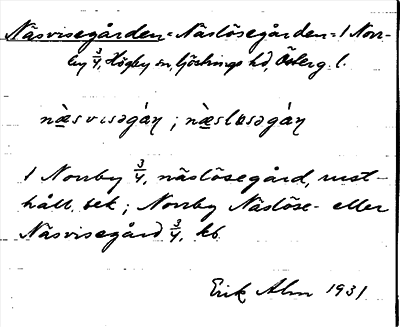 Näsvisegården = Näslösegården = 1 Norr-
by 3/4, Högby sn, Göstrings hd, Österg. l.
næ̀svɩsəgáɳ ; næ̀slösəgáɳ
1 Norrby 3/4, näslösegård, rust-
håll, bek; Norrby Näslöse- eller
Näsvisegård 3/4, kb.
Erik Alm 1931